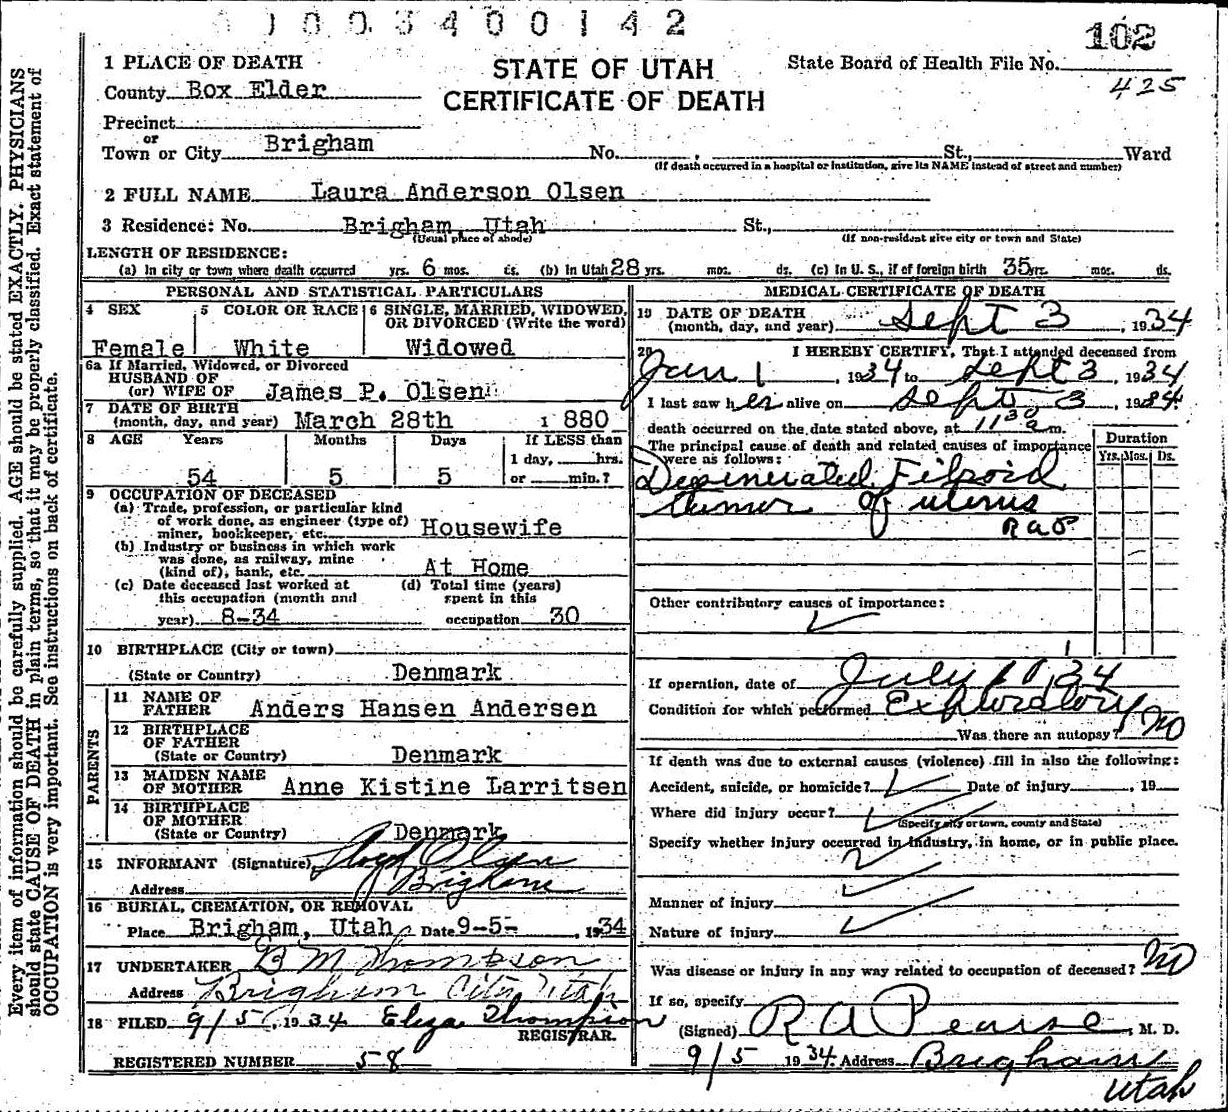 0003400142
102
1 PLACE OF DEATH
STATE OF UTAH
State Board of Health File No.
County Box Elder
CERTIFICATE OF DEATH
425
Precinct
or
Town or City Brigham No. St., Ward
(If death occurred in a hospital or institution, give its NAME instead of street and number)
2 FULL NAME Laura Anderson Olsen
3 Residence: No. Brigham, Utah St.,
(Usual place of abode) (If non-resident give city or town and State)
LENGTH OF RESIDENCE:
(a) In city or town where death occurred yrs. 6 mos. ds. (b) In Utah 28 yrs. mos. ds. (c) In U. S., if of foreign birth 35 yrs. mos. ds.
PERSONAL AND STATISTICAL PARTICULARS
4 SEX
Female
5 COLOR OR RACE
White
6 SINGLE, MARRIED, WIDOWED,
OR DIVORCED (Write the word)
Widowed
6a If Married, Widowed, or Divorced
HUSBAND OF
(or) WIFE OF James P. Olsen
7 DATE OF BIRTH
(month, day, and year) March 28th 1880
8 AGE Years Months Days If LESS than
1 day, hrs.
54 5 5 or min.?
9 OCCUPATION OF DECEASED
(a) Trade, profession, or particular kind
of work done, as engineer (type of)
miner, bookkeeper, etc. Housewife
(b) Industry or business in which work
was done, as railway, mine
(kind of), bank, etc. At Home
(c) Date deceased last worked at
this occupation (month and
year) 8-34
(d) Total time (years)
spent in this
occupation 30
10 BIRTHPLACE (City or town)
(State or Country) Denmark
PARENTS
11 NAME OF
FATHER Anders Hansen Andersen
12 BIRTHPLACE
OF FATHER
(State or Country) Denmark
13 MAIDEN NAME
OF MOTHER Anne Kistine Larritsen
14 BIRTHPLACE
OF MOTHER
(State or Country) Denmark
15 INFORMANT (Signature) Lloyd Olsen
Address Brigham
16 BURIAL, CREMATION, OR REMOVAL
Place Brigham, Utah Date 9-5- , 1934
17 UNDERTAKER B M Thompson
Address Brigham City Utah
18 FILED 9/5, 1934 Eliza Thompson
REGISTRAR.
REGISTERED NUMBER 58
MEDICAL CERTIFICATE OF DEATH
19 DATE OF DEATH
(month, day, and year) Sept 3, 1934
20 I HEREBY CERTIFY, That I attended deceased from
Jan 1, 1934 to Sept 3, 1934
I last saw her alive on Sept 3, 1934
death occurred on the date stated above, at 11 30 a m.
The principal cause of death and related causes of importance
were as follows:
Duration
Yrs. Mos. Ds.
Degenerated Fibroid
tumor of uterus
R a P
Other contributory causes of importance:
If operation, date of July 10, 34
Condition for which performed Exploratory
Was there an autopsy? No
If death was due to external causes (violence) fill in also the following:
Accident, suicide, or homicide? Date of injury , 19
Where did injury occur?
(Specify city or town, county and State)
Specify whether injury occurred in industry, in home, or in public place.
Manner of injury
Nature of injury
Was disease or injury in any way related to occupation of deceased? No
If so, specify
(Signed) R A Pearse, M. D.
9/5 1934. Address Brigham
Utah
Every item of information should be carefully supplied. AGE should be stated EXACTLY. PHYSICIANS
should state CAUSE OF DEATH in plain terms, so that it may be properly classified. Exact statement of
OCCUPATION is very important. See instructions on back of certificate.